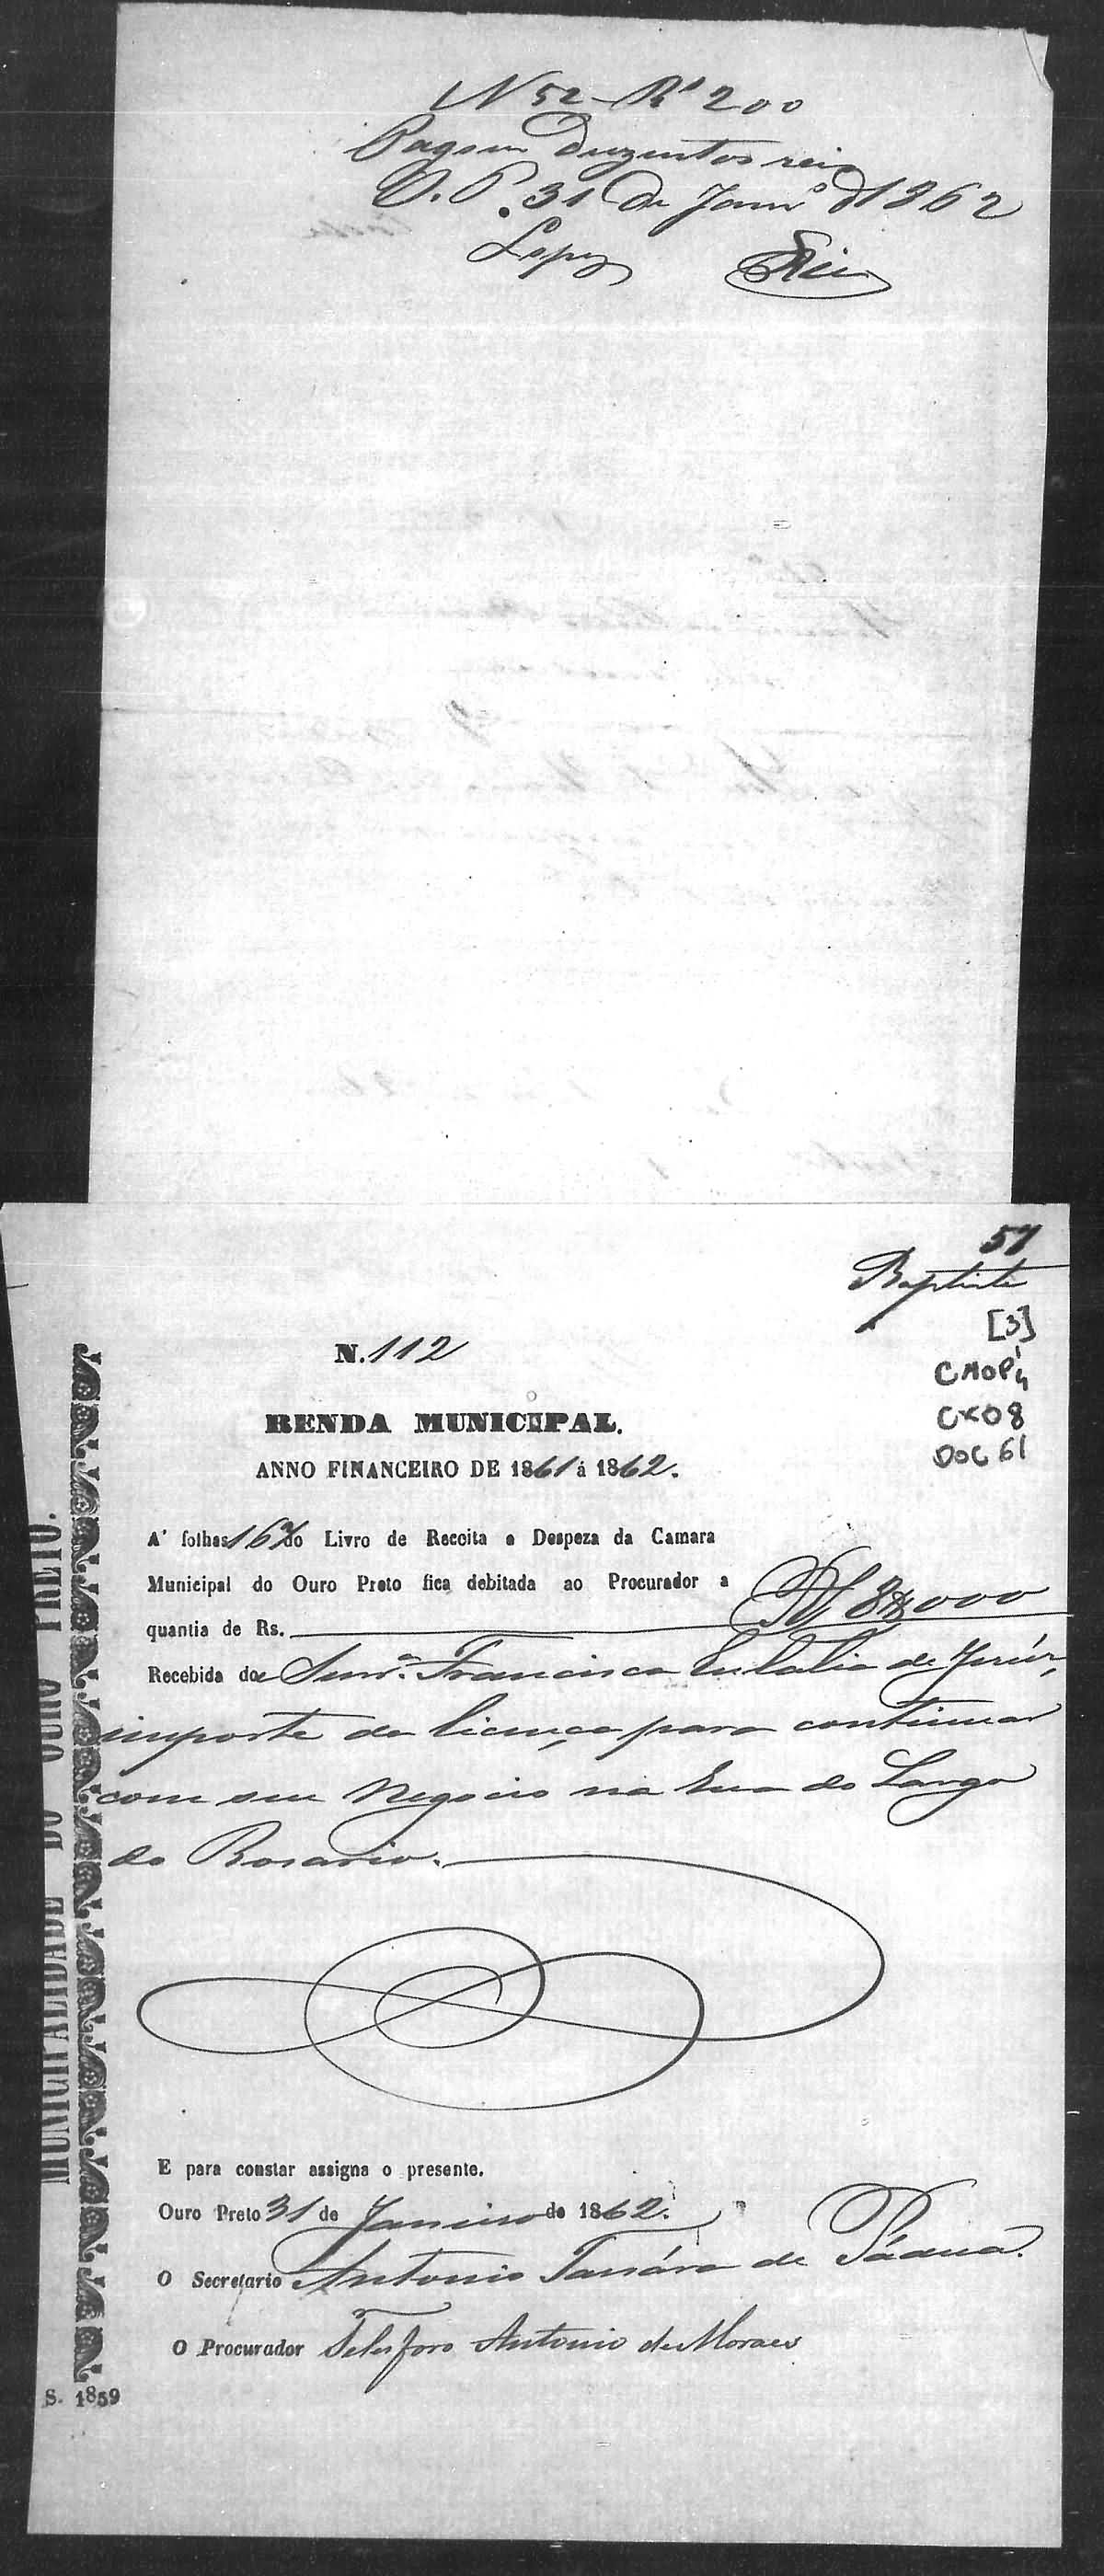 N 52 Rs 200
Pagou Duzentos reis
O. P. 31 de Janro d 1862
Lopes Reis
57
Baptista
[3]
CMOP
CX08
DOC 61
N. 112
RENDA MUNICIPAL.
ANNO FINANCEIRO DE 1861 á 1862.
A' folhas 16 do Livro de Receita e Despeza da Camara
Municipal do Ouro Preto fica debitada ao Procurador a
quantia de Rs. Rs 8$000
Recebida da Snra. Francisca Eulalia de Jesús,
importe da licença para continuar
com seu negocio na Rua do Largo
do Rosario.
E para constar assigna o presente.
Ouro Preto 31 de Janeiro de 1862.
O Secretario Antonio de Pádua.
O Procurador Telesforo Antonio de Moraes
MUNICIPALIDADE DO OURO PRETO.
S. 1859